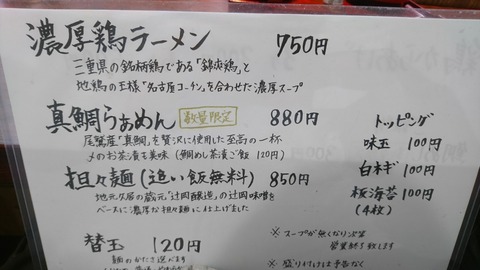 濃厚鶏ラーメン 750円
三重県の銘柄鶏である「錦爽鶏」と
地鶏の王様"名古屋コーチン"を合わせた濃厚スープ
真鯛らぁめん 数量限定 880円
尾鷲産"真鯛"を贅沢に使用した至高の一杯
〆のお茶漬も美味(鯛めし茶漬ご飯 120円)
担々麺(追い飯無料) 850円
地元久居の蔵元"辻岡醸造"の辻岡味噌を
ベースに濃厚な担々麺に仕上げました
替玉 120円
麺のかたさ選べます
トッピング
味玉 100円
白ネギ 100円
板海苔 100円
(4枚)
※スープが無くなり次第
営業終了致します